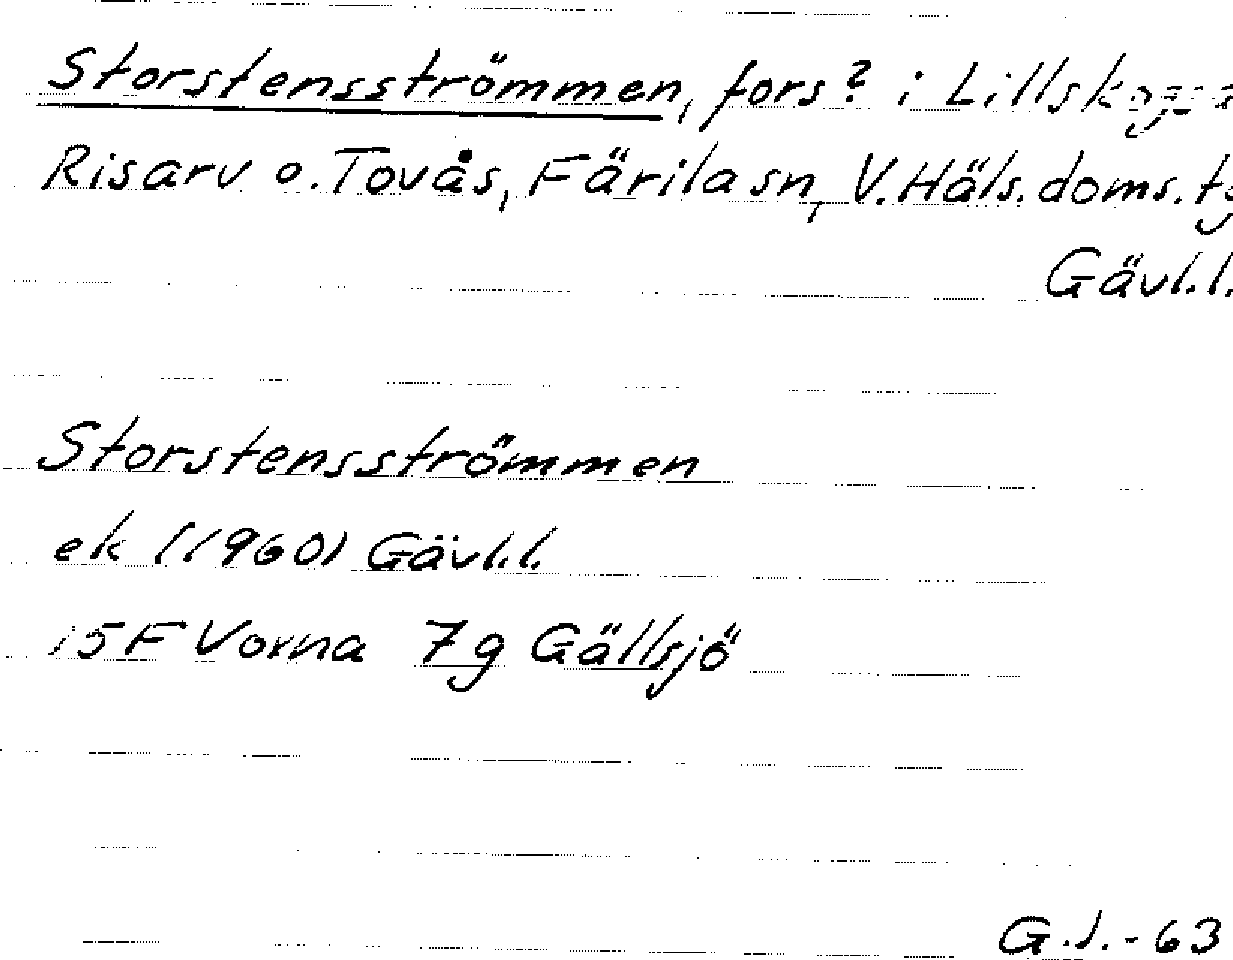 Storstensströmmen, fors? i
Risarv o. Tovås, Färila sn, V. Häls. doms.
Gävl.l.
Storstensströmmen
ek (1960) Gävl.l.
15F Vorna 7g Gällsjö
G.J.-63